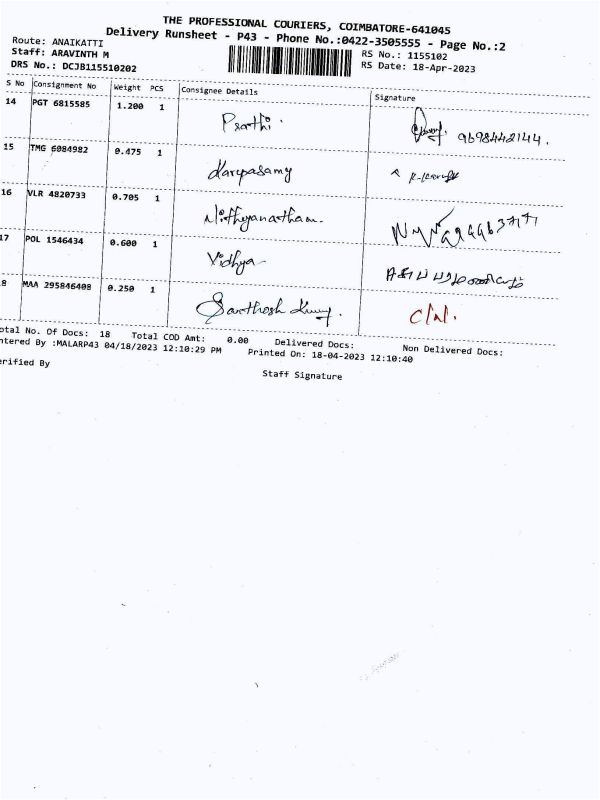 THE PROFESSIONAL COURIERS, COIMBATORE-641045
Delivery Runsheet - P43 - Phone No.:0422-3505555 - Page No.:2
Route: ANAIKATTI
Staff: ARAVINTH M RS No.: 1155102
DRS No.: DCJB115510202 RS Date: 18-Apr-2023
S No Consignment No Weight PCS Consignee Details Signature
14 PGT 6815585 1.200 1 Prarthi. 9698442144.
15 TMG 6084982 0.475 1 Karupasamy
16 VLR 4820733 0.705 1 Nithyanantham.
17 POL 1546434 0.600 1 Vidhya
8 MAA 295846408 0.250 1 Santhosh Kumar. C/N.
otal No. Of Docs: 18 Total COD Amt: 0.00 Delivered Docs: Non Delivered Docs:
ntered By :MALARP43 04/18/2023 12:10:29 PM Printed On: 18-04-2023 12:10:40
erified By Staff Signature